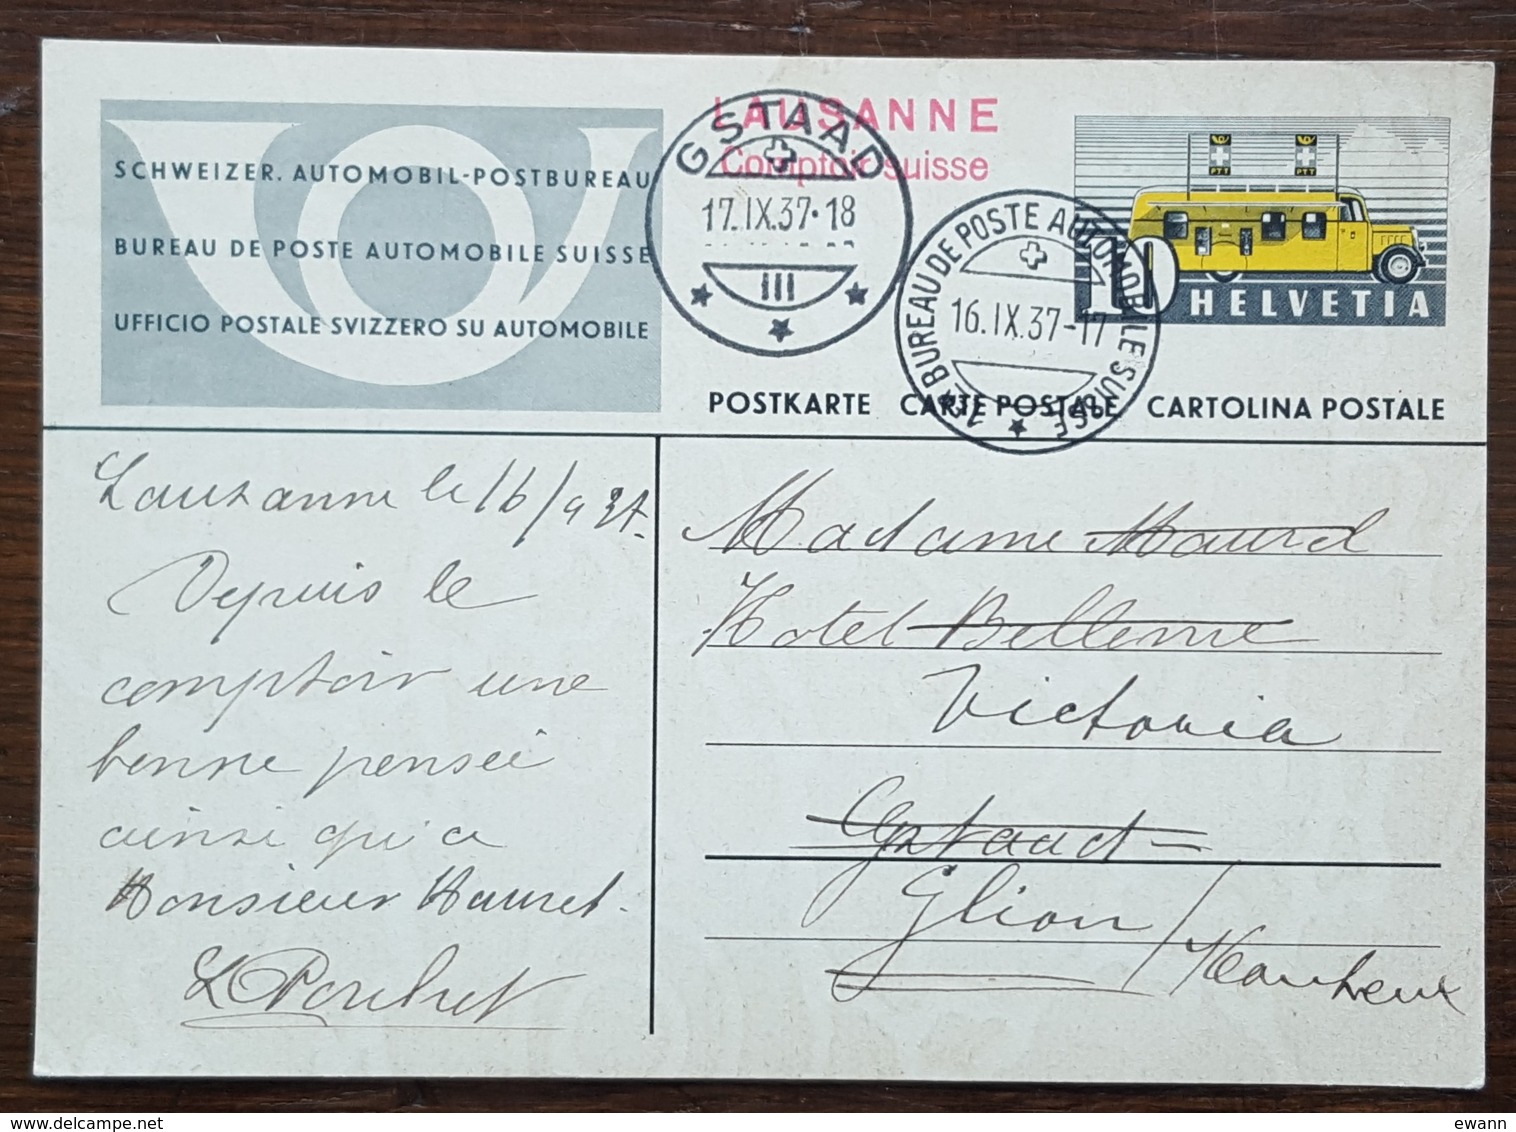 SCHWEIZER. AUTOMOBIL-POSTBUREAU
BUREAU DE POSTE AUTOMOBILE SUISSE
UFFICIO POSTALE SVIZZERO SU AUTOMOBILE
LAUSANNE
Comptoir suisse
GSTAAD
17.IX.37-18
III
BUREAU DE POSTE AUTOMOBILE SUISSE
16.IX.37-17
PTT PTT
10 HELVETIA
POSTKARTE CARTE POSTALE CARTOLINA POSTALE
Lausanne le 16/9 37.
Depuis le
comptoir une
bonne pensée
ainsi qu'a
Monsieur
Madame
Hotel Bellevue
Victoria
Gstaad
Glion /
ewann